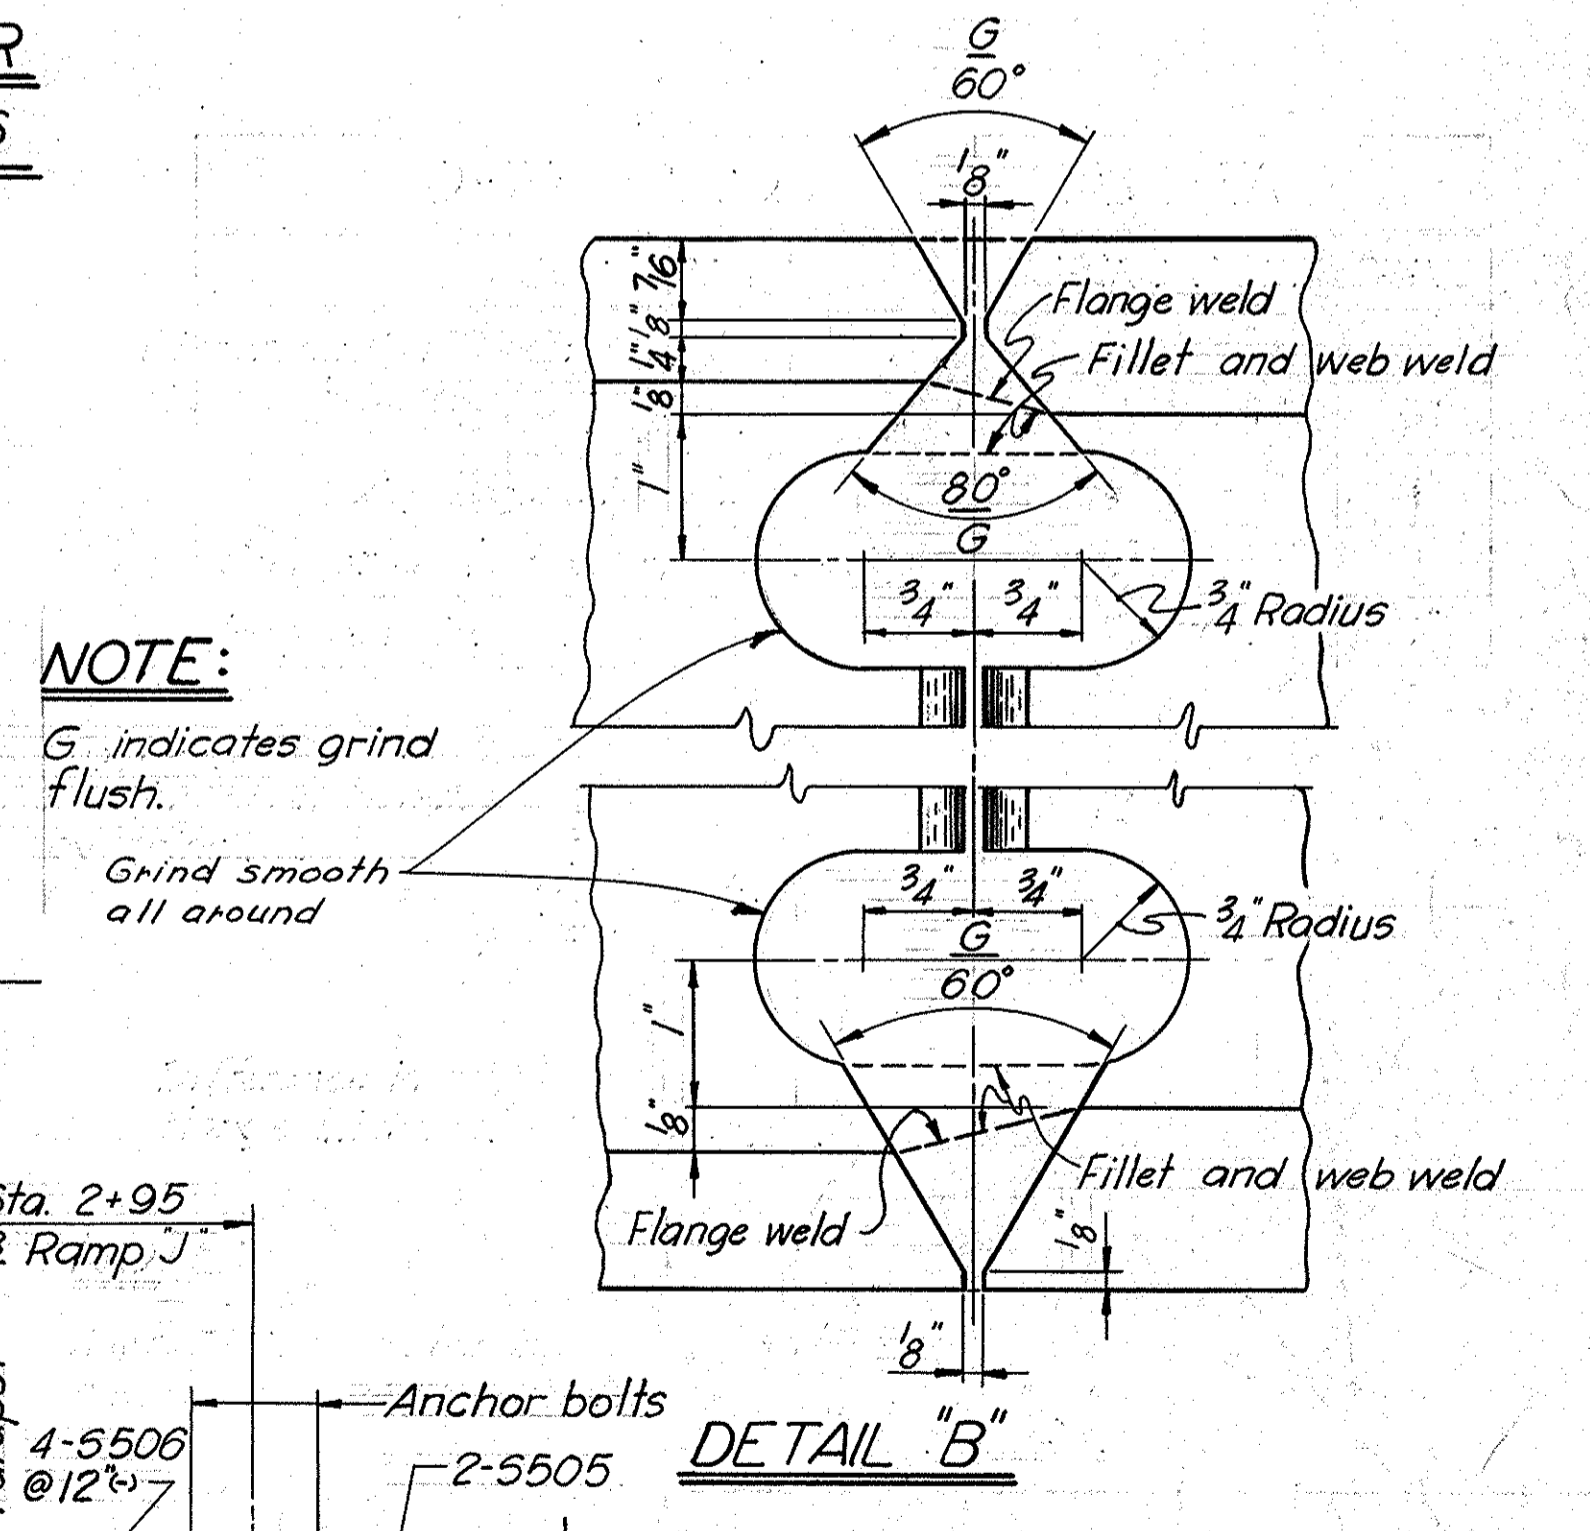 R
G
60°
1/8"
7/16"
1/8"
1/4"
1/8"
1"
Flange weld
Fillet and web weld
80°
G
3/4" 3/4"
3/4" Radius
NOTE:
G indicates grind
flush.
Grind smooth
all around
3/4" 3/4"
3/4" Radius
G
60°
1"
1/8"
Fillet and web weld
Flange weld
1/8"
1/8"
Sta. 2+95
Ramp "J"
Anchor bolts
4-S506
@12"(-)
2-S505
DETAIL "B"